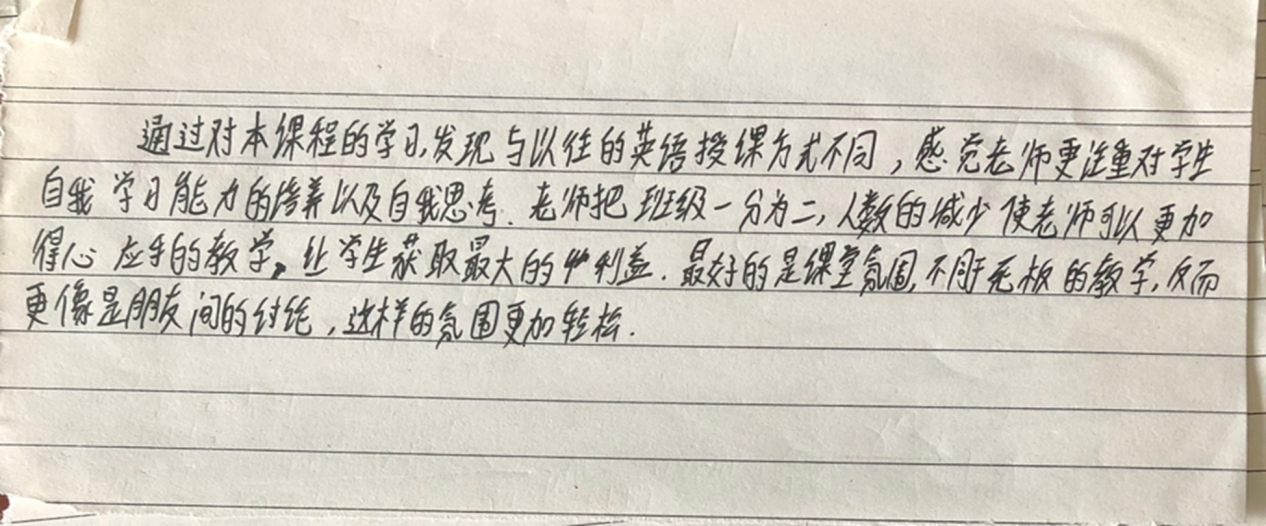 通过对本课程的学习,发现与以往的英语授课方式不同,感觉老师更注重对学生
自我学习能力的培养以及自我思考.老师把班级一分为二,人数的减少使老师可以更加
得心应手的教学。让学生获取最大的利益.最好的是课堂氛围,不同于死板的教学,反而
更像是朋友间的讨论,这样的氛围更加轻松.